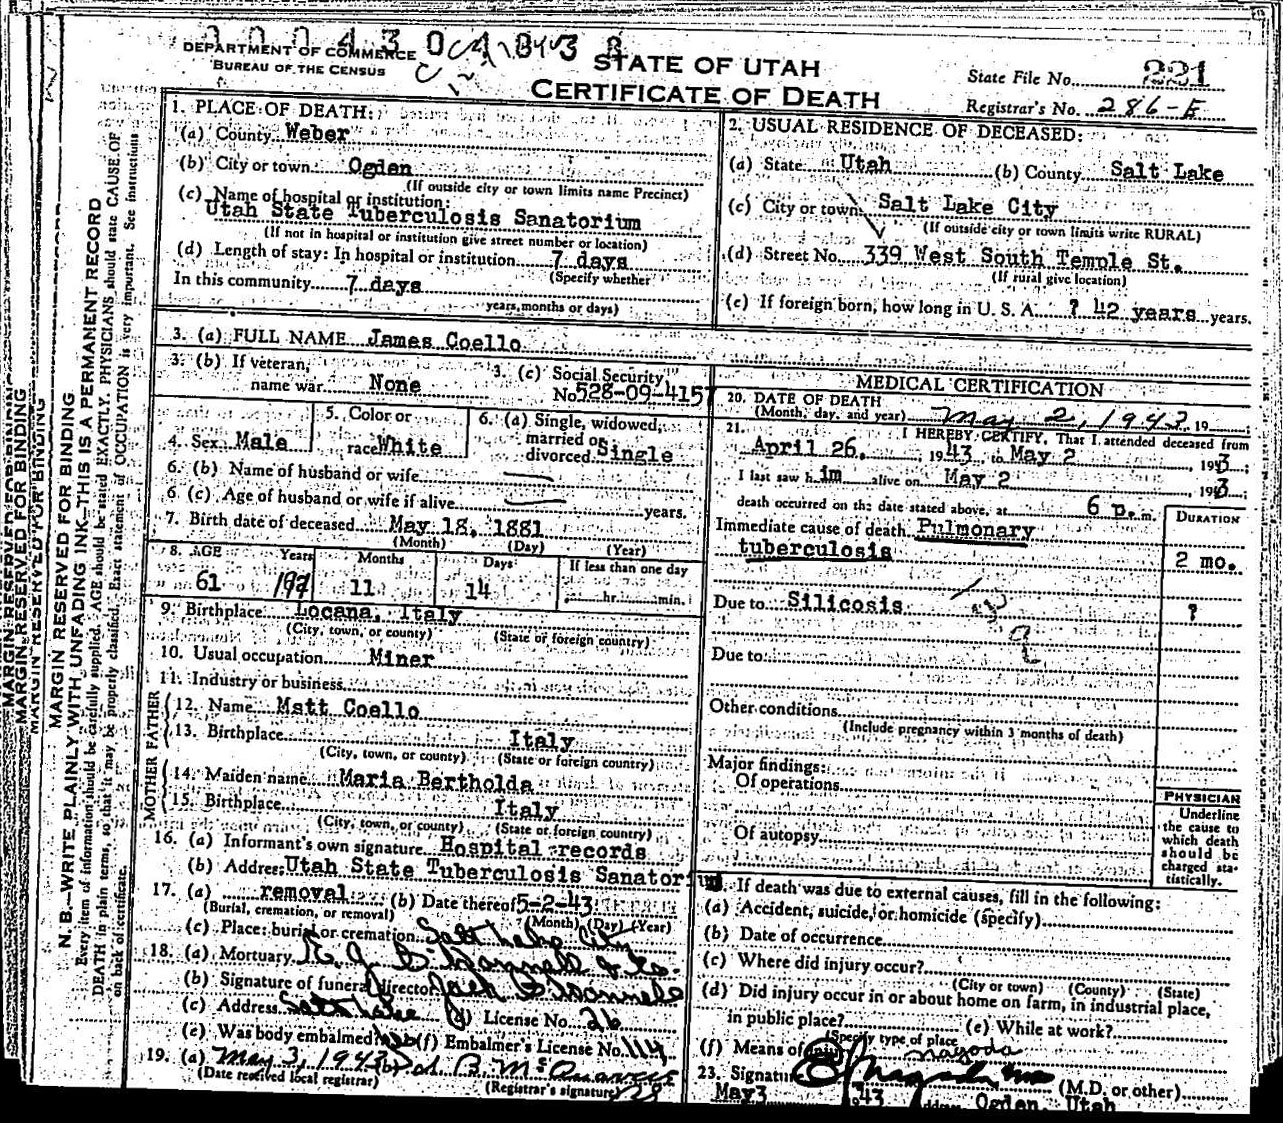 DEPARTMENT OF COMMERCE
BUREAU OF THE CENSUS
STATE OF UTAH
CERTIFICATE OF DEATH
State File No. 221
Registrar's No. 286-E
MARGIN RESERVED FOR BINDING
N. B.—WRITE PLAINLY WITH UNFADING INK—THIS IS A PERMANENT RECORD
Every item of information should be carefully supplied. AGE should be stated EXACTLY. PHYSICIANS should state CAUSE OF
DEATH in plain terms, so that it may be properly classified. Exact statement of OCCUPATION is very important. See instructions
on back of certificate.
1. PLACE OF DEATH:
(a) County Weber
(b) City or town Ogden
(If outside city or town limits name Precinct)
(c) Name of hospital or institution:
Utah State Tuberculosis Sanatorium
(If not in hospital or institution give street number or location)
(d) Length of stay: In hospital or institution 7 days
(Specify whether
In this community 7 days
years, months or days)
2. USUAL RESIDENCE OF DECEASED:
(a) State Utah (b) County Salt Lake
(c) City or town Salt Lake City
(If outside city or town limits write RURAL)
(d) Street No. 339 West South Temple St.
(If rural give location)
(e) If foreign born, how long in U. S. A. ? 42 years years.
3. (a) FULL NAME James Coello
3. (b) If veteran, name war None
3. (c) Social Security No. 528-09-4157
4. Sex Male
5. Color or race White
6. (a) Single, widowed, married or divorced Single
6. (b) Name of husband or wife
6 (c) Age of husband or wife if alive years.
7. Birth date of deceased May 18, 1881
(Month) (Day) (Year)
8. AGE Years Months Days If less than one day
61 11 14 hr. min.
9. Birthplace Locana, Italy
(City, town, or county) (State or foreign country)
10. Usual occupation Miner
11. Industry or business
FATHER
12. Name Matt Coello
13. Birthplace Italy
(City, town, or county) (State or foreign country)
MOTHER
14. Maiden name Maria Bertholda
15. Birthplace Italy
(City, town, or county) (State or foreign country)
16. (a) Informant's own signature Hospital records
(b) Address Utah State Tuberculosis Sanatorium
17. (a) removal (b) Date thereof 5-2-43
(Burial, cremation, or removal) (Month) (Day) (Year)
(c) Place: burial or cremation Salt Lake City
18. (a) Mortuary
(b) Signature of funeral director Jack
(c) Address Salt Lake (d) License No. 26
(e) Was body embalmed? (f) Embalmer's License No. 114
19. (a) May 3, 1943 (b)
(Date received local registrar) (Registrar's signature)
MEDICAL CERTIFICATION
20. DATE OF DEATH
(Month, day, and year) May 2, 1943 19
21. I HEREBY CERTIFY, That I attended deceased from
April 26, 1943, to May 2, 1943;
I last saw him alive on May 2, 1943;
death occurred on the date stated above, at 6 p. m.
DURATION
Immediate cause of death Pulmonary
tuberculosis 2 mo.
Due to Silicosis ?
Due to
Other conditions
(Include pregnancy within 3 months of death)
Major findings:
Of operations
Of autopsy
PHYSICIAN
Underline
the cause to
which death
should be
charged sta-
tistically.
If death was due to external causes, fill in the following:
(a) Accident, suicide, or homicide (specify)
(b) Date of occurrence
(c) Where did injury occur?
(City or town) (County) (State)
(d) Did injury occur in or about home on farm, in industrial place,
in public place? (e) While at work?
(Specify type of place
(f) Means of injury
23. Signature (M.D. or other)
May3 1943 Address Ogden, Utah